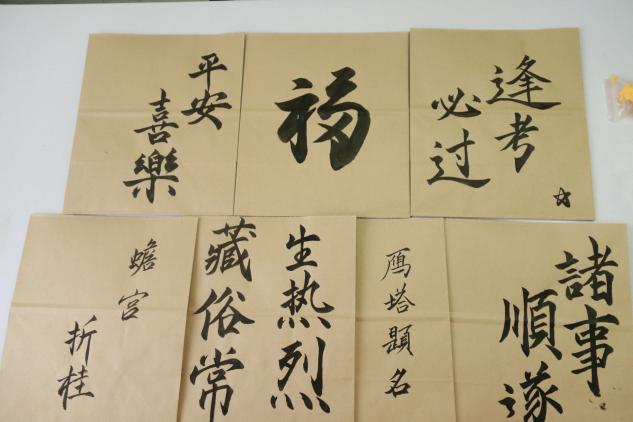 平安
喜樂
福
逢考
必过
蟾宫
折桂
生热烈
藏俗常
鴈塔題名
諸事
順遂